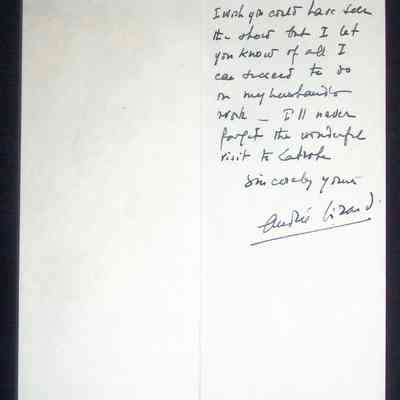 I wish you could have seen
the show but I let
you know of all I
can succeed to do
on my husband's
work — I'll never
forget the wonderful
visit to Latrobe
Sincerely yours